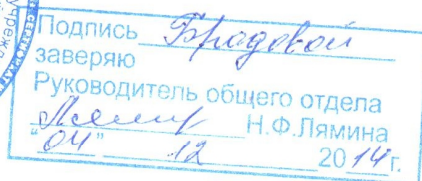 Подпись Бродовой
заверяю
Руководитель общего отдела
Н.Ф.Лямина
"04" 12 2014г.